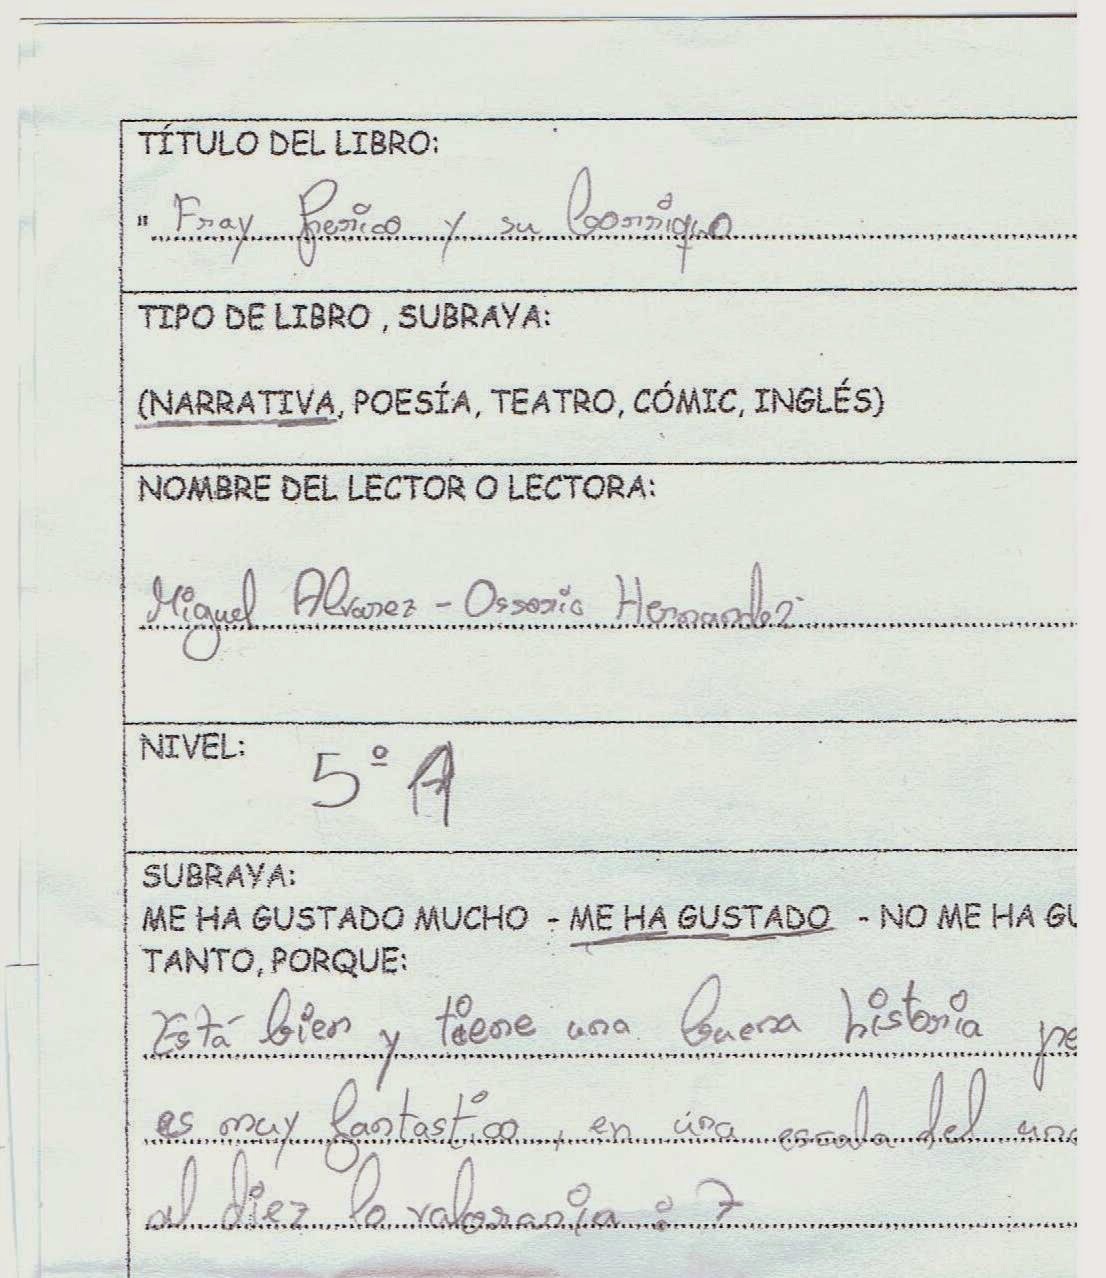 TÍTULO DEL LIBRO:
" Fray Perico y su borrico
TIPO DE LIBRO , SUBRAYA:
(NARRATIVA, POESÍA, TEATRO, CÓMIC, INGLÉS)
NOMBRE DEL LECTOR O LECTORA:
Miguel Alvarez - Ossorio Hernandez
NIVEL: 5º A
SUBRAYA:
ME HA GUSTADO MUCHO - ME HA GUSTADO - NO ME HA GU
TANTO, PORQUE:
Está bien y tiene una buena historia pe
es muy fantastico, en una escala del uno
al diez lo valoraria : 7